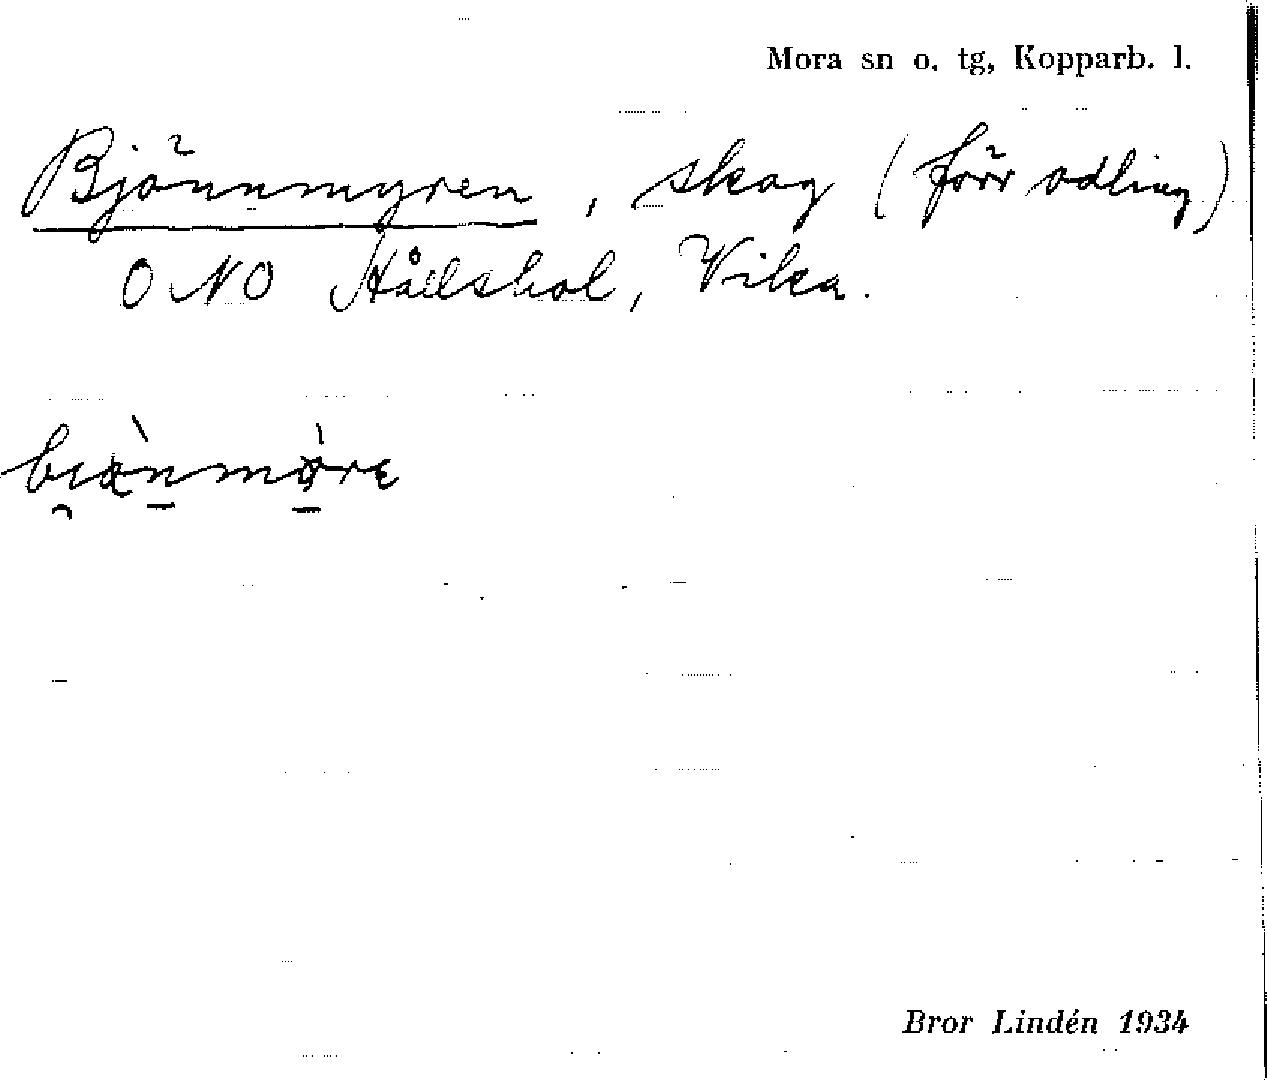 Mora sn o. tg, Kopparb. l.
Bjönnmyren, skog (förr odling)
ONO Hådshol, Vika.
Bror Lindén 1934